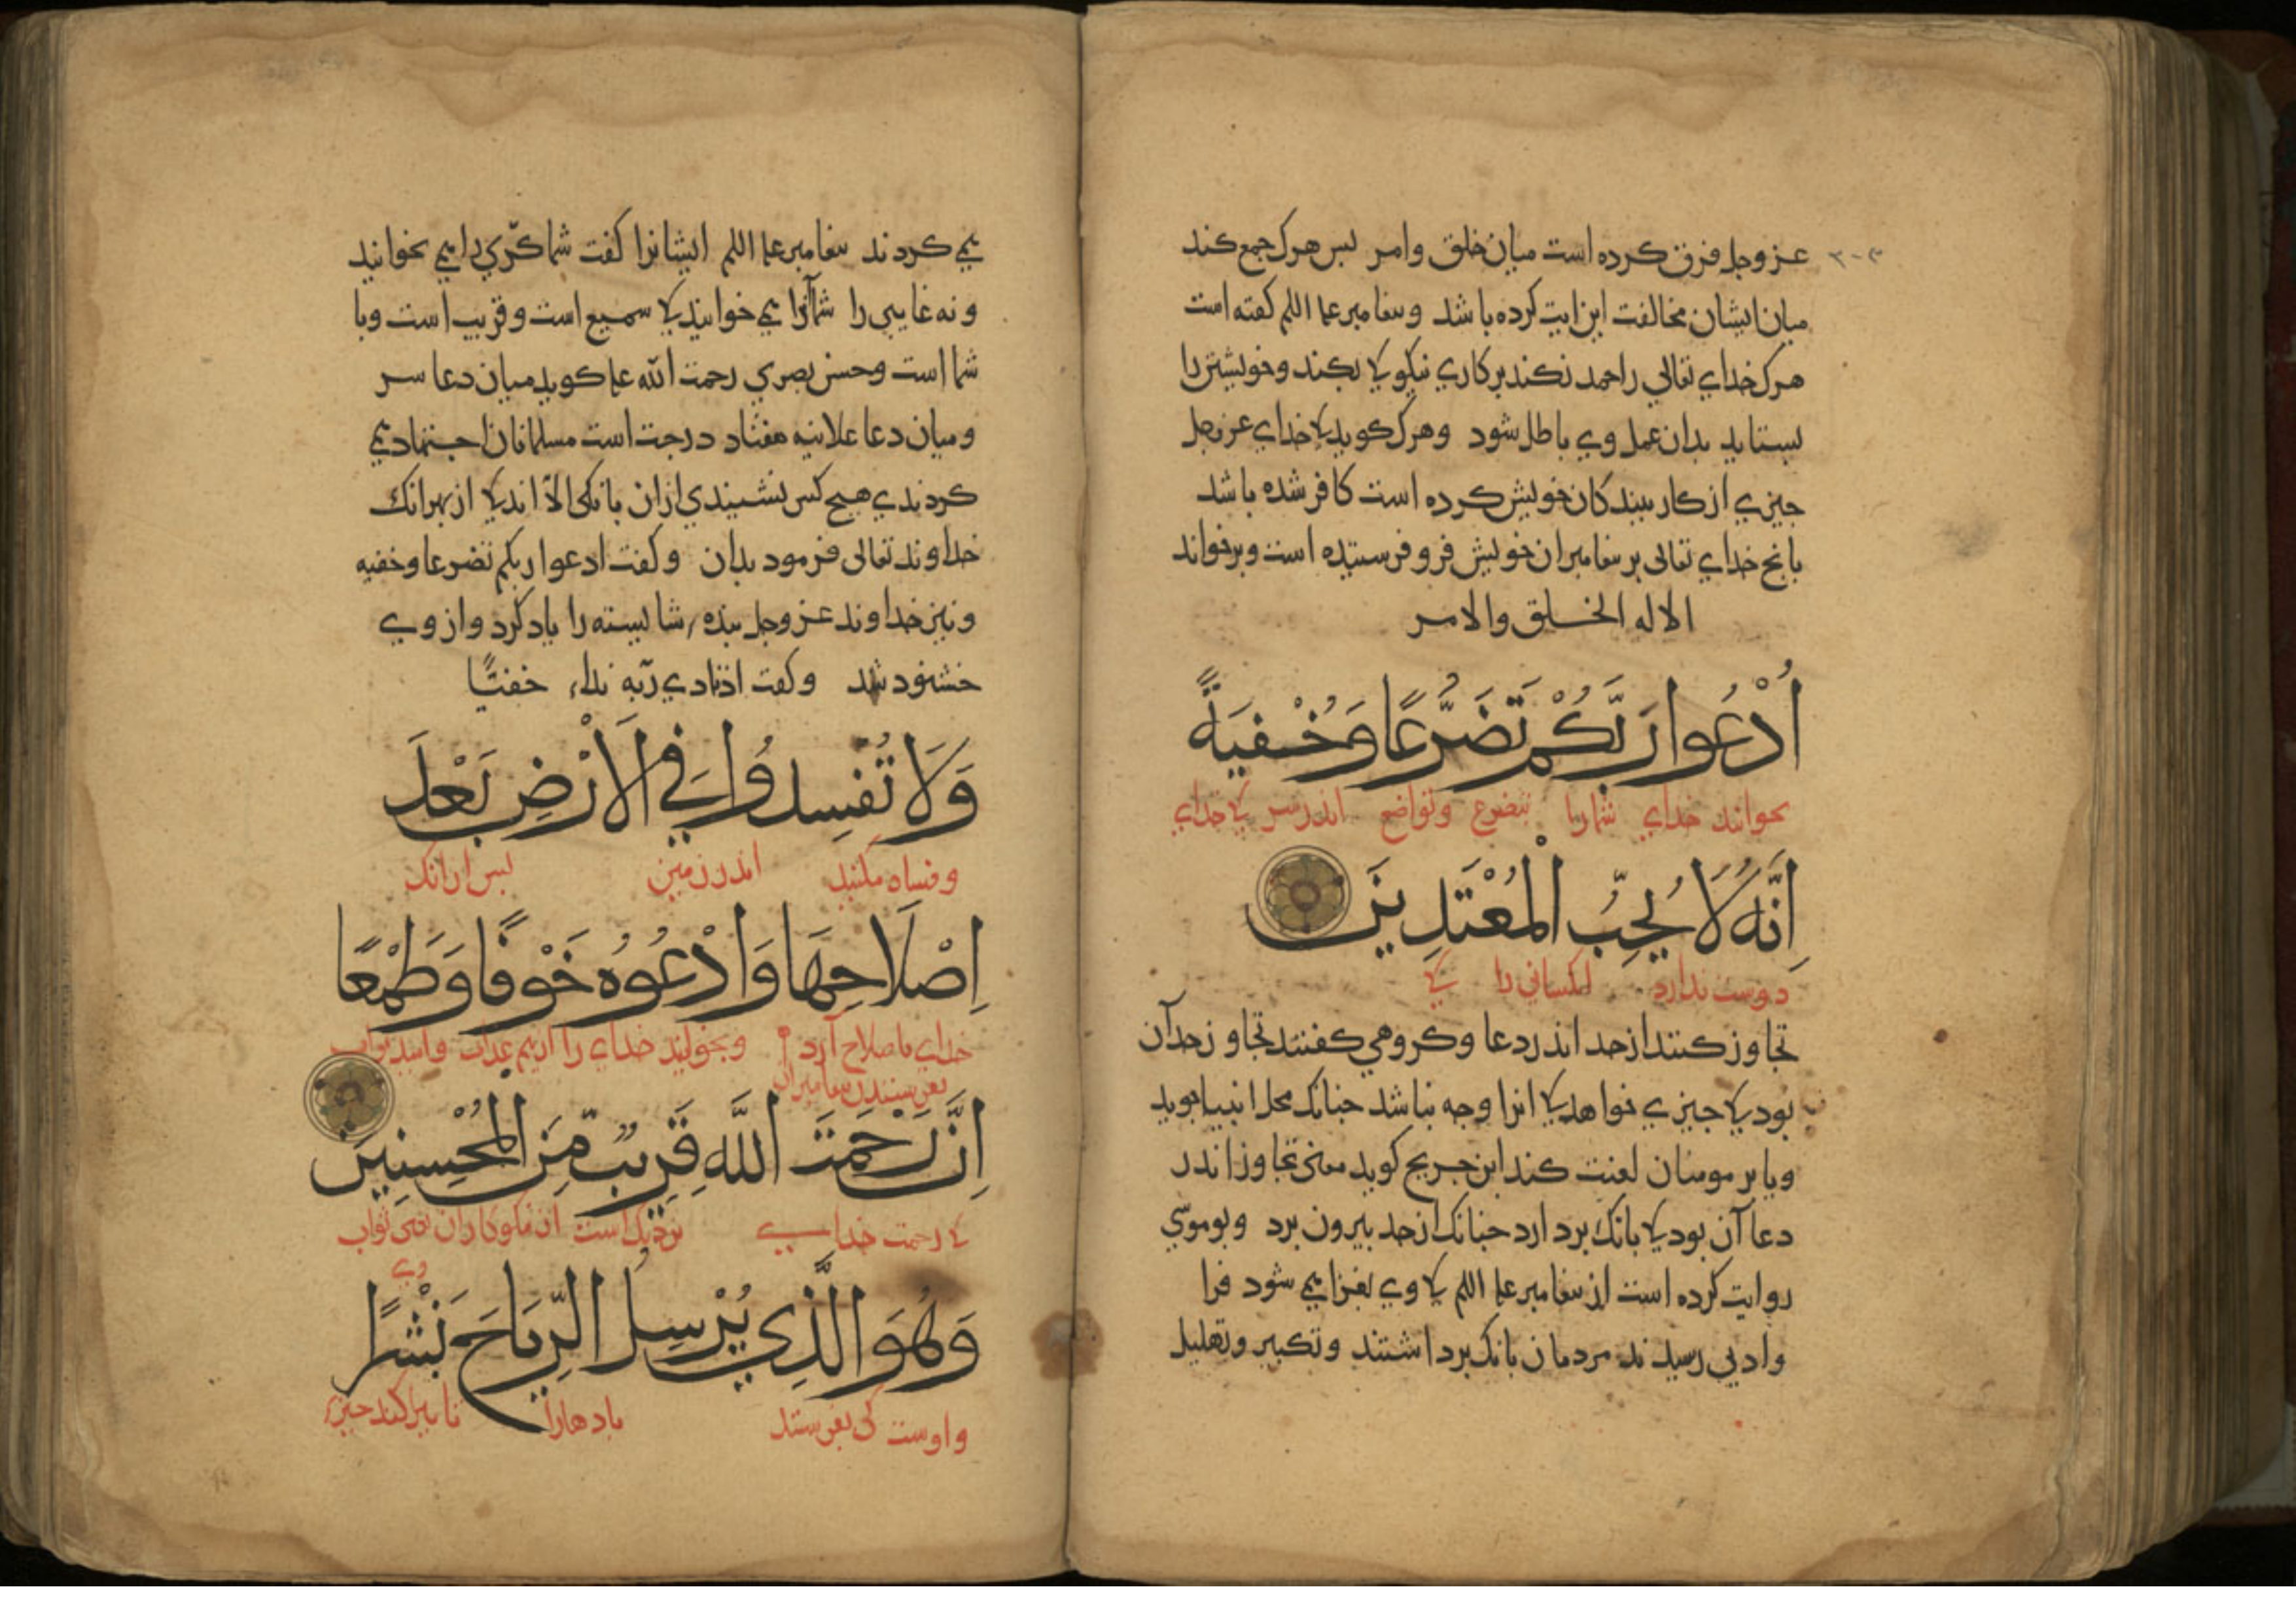 عزوجل فرق کرده است میان خلق وامر بس هرک جمع کند
میان ایشان مخالفت این ایت کرده باشد وبیغامبر علم اللم کفته است
هرک خدای تعالی را حمد نکند بر کاری نیکو کی بکند وخویشتن را
بستاید بدان عمل وی باطل شود وهرک کوید کی خدای عزوجل
جیزی از کار ببندکان خویش کرده است کافر شده باشد
بانج خدای تعالی بر بیغامبران خویش فرو فرستیده است وبرخواند
الا له الخلق والامر
اُدْعُوا رَبَّكُمْ تَضَرُّعًا وَخُفْيَةً
بخوانید خدای شما را بتضرع وتواضع اندر سر کی خدای
اِنَّهُ لَا يُحِبُّ الْمُعْتَدِينَ
دوست ندارد انکسانی را کی
تجاوز کنند از حد اندر دعا وکروهی کفتند تجاوز حد آن
بود کی جیزی خواهد کی انرا وجه نباشد جنانک محل انبیا جوید
ویا بر مومنان لعنت کند ابن جریج کوید معنی تجاوز اندر
دعا آن بود کی بانک بردارد جنانک از حد بیرون برد وبوموسی
روایت کرده است از بیغامبر علم اللم کی وی بغزا یمی شود فرا
وادیی رسیدند مردمان بانک برداشتند وتکبیر وتهلیل
یمی کردند بیغامبر علم اللم ایشانرا کفت شما کرّی را یمی نخوانید
ونه غایبی را شما آنرا یمی خوانید کی سمیع است وقریب است وبا
شما است وحسن بصری رحمت الله علم کوید میان دعا سر
ومیان دعا علانیه هفتاد درجت است مسلمانان اجتهاد یمی
کردندی هیج کس نشنیدی ازان بانکی الا اندکی از بهر انک
خداوند تعالی فرمود بدان وکفت ادعوا ربکم تضرعا وخفیه
ونیز خداوند عزوجل بنده شایسته را یاد کرد واز وی
خشنود شد وکفت اذنادی ربّه نداء خفیّا
وَلَا تُفْسِدُوا فِي الْاَرْضِ بَعْدَ
وفساد مکنید اندر زمین بس ازانک
اِصْلَاحِهَا وَادْعُوهُ خَوْفًا وَطَمَعًا
خدای باصلاح آرد وبخوانید خدای را از بیم عذاب وامید ثواب
بفرستیدن بیغامبران
اِنَّ رَحْمَتَ اللَّهِ قَرِيبٌ مِّنَ الْمُحْسِنِينَ
کی رحمت خدایی نزدیک است از نیکوکاران یعنی ثواب
وی
وَهُوَ الَّذِي يُرْسِلُ الرِّيَاحَ نَشْرًا
واوست کی بفرستد بادهارا تا ببراکند